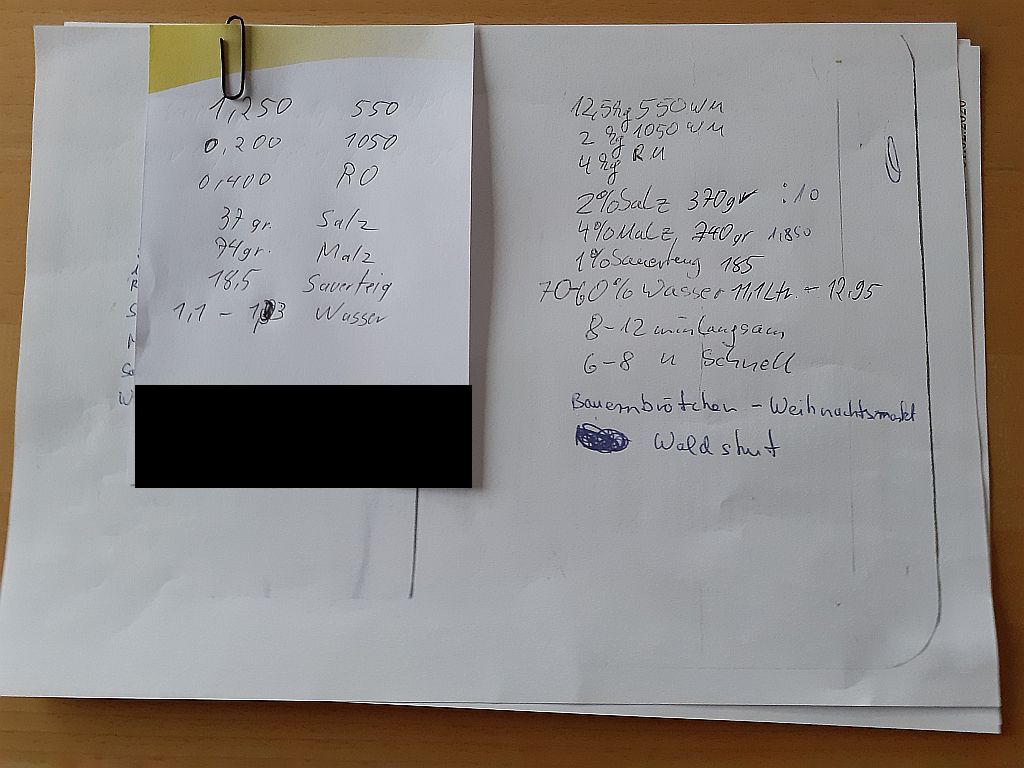 1,250 550
0,200 1050
0,400 RO
37 gr. Salz
74gr. Malz
18,5 Sauerteig
1,1 – 1,3 Wasser
12,5kg 550 WM
2 kg 1050 WM
4 kg RM
2% Salz 370gr :10
4% Malz, 740gr 1,850
1% Sauerteug 185
70-60% Wasser 11,1 Ltr. – 12,95
8-12 min langsam
6-8 " Schnell
Bauernbrötchen – Weihnachtsmarkt
Waldshut